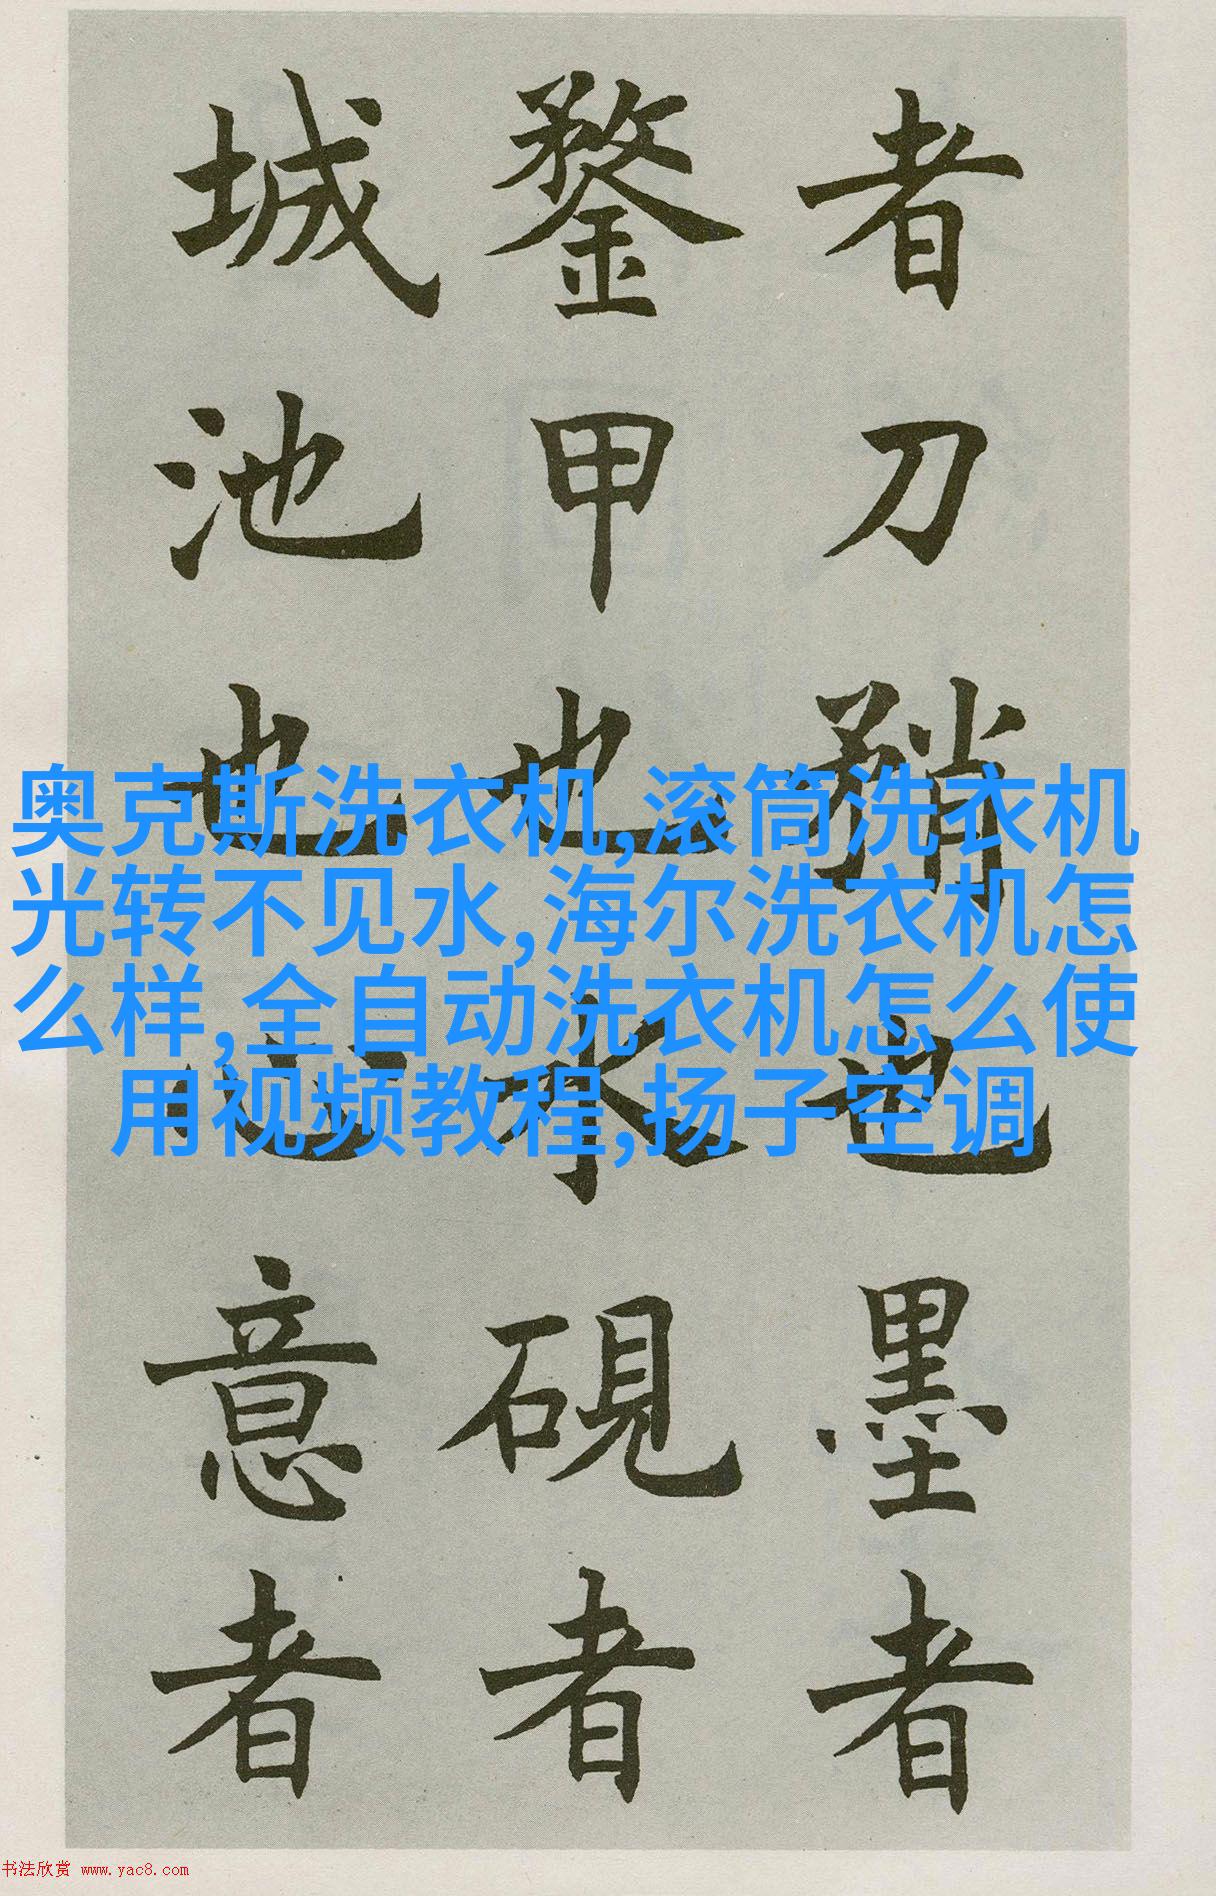 者刀矟也墨者
鍪甲也水硯者
城池也心意者
奥克斯洗衣机,滚筒洗衣机
光转不见水,海尔洗衣机怎
么样,全自动洗衣机怎么使
用视频教程,扬子空调
书法欣赏 www.yac8.com